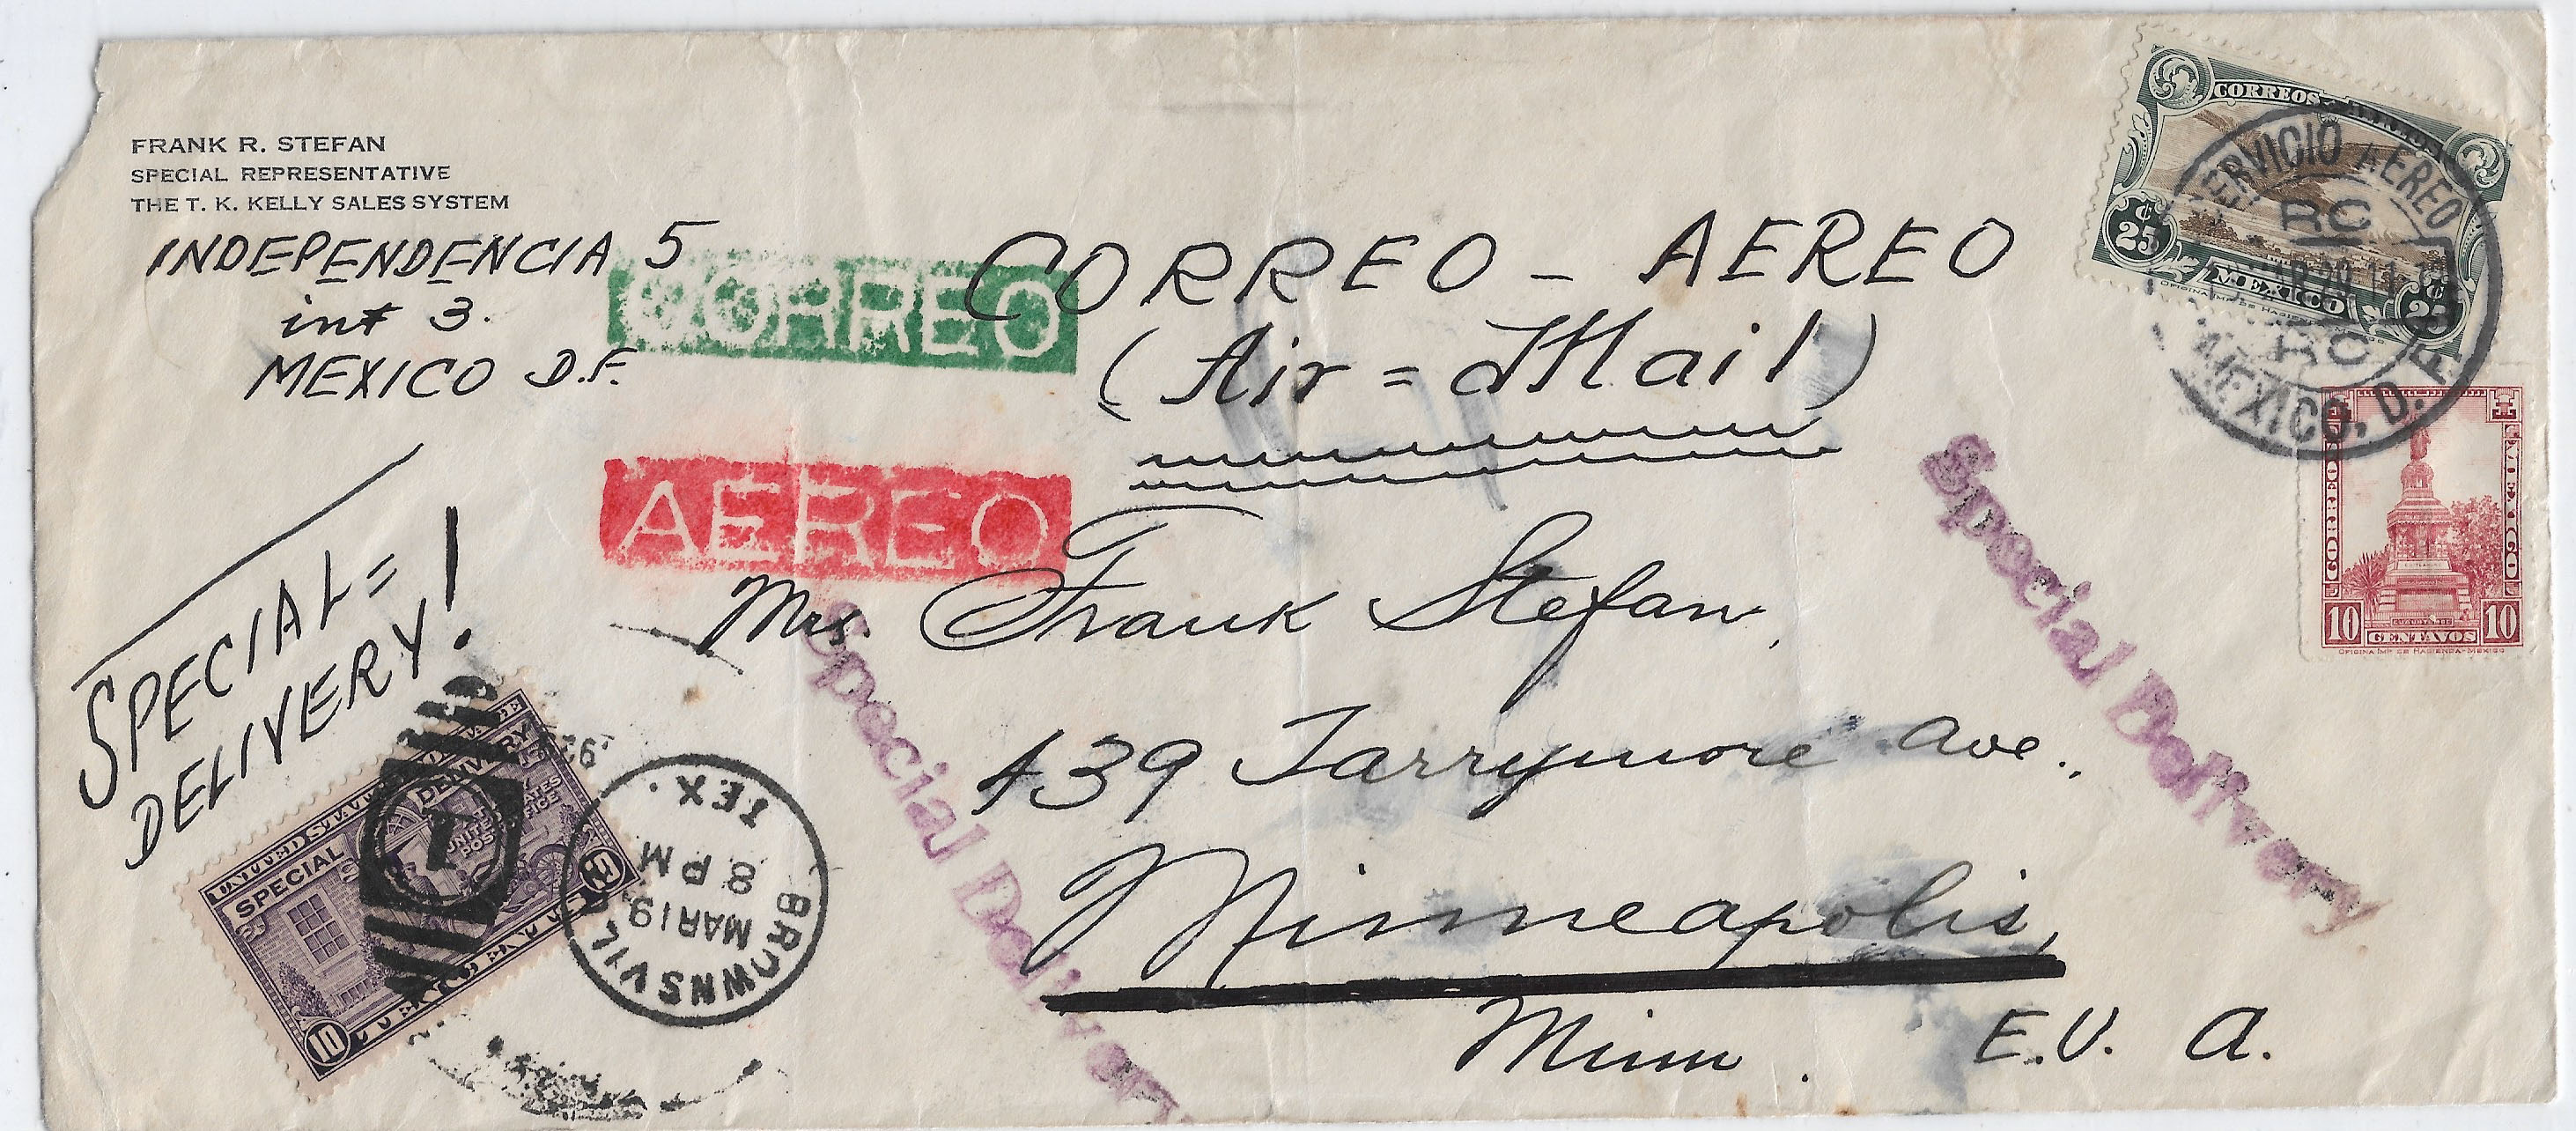 FRANK R. STEFAN
SPECIAL REPRESENTATIVE
THE T. K. KELLY SALES SYSTEM
INDEPENDENCIA 5
int 3.
MEXICO D.F.
CORREO - AEREO
(Air = Mail)
CORREO
AEREO
CORREOS
25 ¢ MEXICO 25 ¢
SERVICIO AEREO
RC
RC
MEXICO, D. F.
CORREOS MEXICO
10 CENTAVOS 10
OFICINA IMP. DE HACIENDA-MEXICO
SPECIAL=
DELIVERY!
Special Delivery
Special Delivery
Mrs. Frank Stefan,
439 Tarrymore Ave.,
Minneapolis,
Minn.
E.U.A.
UNITED STATES
SPECIAL DELIVERY
UNITED STATES
POST OFFICE
10 10
1
BROWNSVIL
TEX.
MAR 19
8 PM